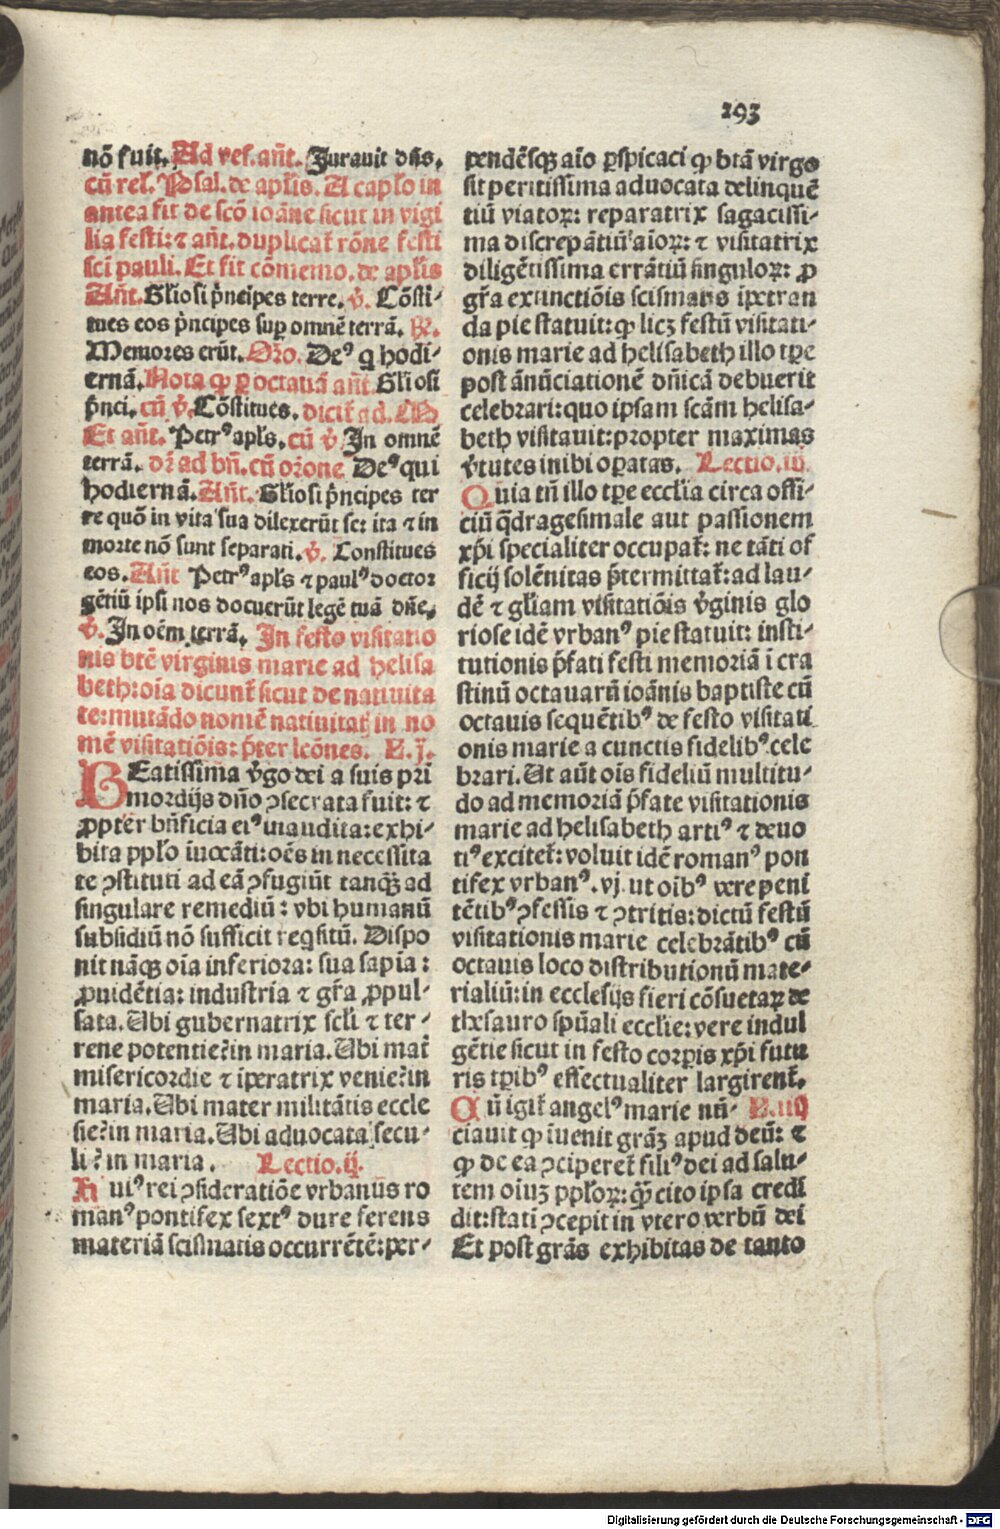 293
nō fuit. Ad vesp. añt. Jurauit dñs.
cū rel. Psal. de apl'is. A caplo in
antea fit de scō ioāne sicut in vigi
lia festi: ⁊ añt. duplicat̄ rōne festi
sci pauli. Et fit cōmemo. de apl'is
Añt. Gl'iosi p̄ncipes terre. ꝟ. Cōsti-
tues eos p̄ncipes sup̱ omnē terrā. ℞.
Memores erūt. Oro. Deꝰ q hodi-
ernā. Nota ꝙ ꝑ octauā añt. Gl'iosi
p̄nci. cū ꝟ. Cōstitues. dicit̄ ad. M
Et añt. Petrꝰ apl's. cū ꝟ. In omnē
terrā. dr̄ ad bñ. cū orone Deꝰ qui
hodiernā. Añt. Gl'iosi p̄ncipes ter
re quō in vita sua dilexerūt se: ita ⁊ in
morte nō sunt separati. ꝟ. Constitues
eos. Añt Petrꝰ apl's ⁊ paulꝰ doctor
gētiū ipsi nos docuerūt legē tuā dñe.
ꝟ. In oēm terrā. In festo visitatio
nis btē virginis marie ad helisa
beth: oīa dicunt̄ sicut de natiuita
te: mutādo nomē natiuitatꝭ in no
mē visitatiōis: p̄ter lcōnes. L. j.
BEatissima ꝟgo dei a suis pri
mordijs dño ꝯsecrata fuit: ⁊
ꝓpter bñficia eiꝰ inaudita: exhi-
bita pplo īuocāti: oēs in necessita
te ꝯstituti ad eā ꝯfugiūt tanqꝫ ad
singulare remediū: vbi humanū
subsidiū nō sufficit reqsitū. Dispo
nit nāqꝫ oīa inferiora: sua sapīa:
ꝓuidētia: industria ⁊ gr̄a ꝓpul-
sata. Ubi gubernatrix secl'i ⁊ ter-
rene potentie? in maria. Ubi mat̄
misericordie ⁊ iꝑatrix venie? in
maria. Ubi mater militātis eccle
sie? in maria. Ubi aduocata secu-
li? in maria. Lectio. ij.
Huiꝰ rei ꝯsideratiōe vrbanus ro
manꝰ pontifex sextꝰ dure ferens
materiā scismatis occurrētē: per-
pendēsqꝫ aīo ꝑspicaci ꝙ btā virgo
sit peritissima aduocata delinquē
tiū viatoꝝ: reparatrix sagacissi-
ma discrepātiū aīoꝝ: ⁊ visitatrix
diligētissima errātiū singuloꝝ: ꝓ
gr̄a extinctiōis scismatis īpetran
da pie statuit: ꝙ licꝫ festū visitati-
onis marie ad helisabeth illo tꝑe
post ānūciationē dñicā debuerit
celebrari: quo ipsam scām helisa-
beth visitauit: propter maximas
ꝟtutes inibi oꝑatas. Lectio. iij.
Quia tñ illo tꝑe eccl'ia circa offi-
ciū q̄dragesimale aut passionem
xp̄i specialiter occupat̄: ne tāti of
ficij solēnitas p̄termittat̄: ad lau-
dē ⁊ gl'iam visitatiōis ꝟginis glo
riose idē vrbanꝰ pie statuit: insti-
tutionis p̄fati festi memoriā ī cra
stinū octauarū ioānis baptiste cū
octauis sequētibꝰ de festo visitati
onis marie a cunctis fidelibꝰ cele
brari. Ut aūt oīs fideliū multitu-
do ad memoriā p̄fate visitationis
marie ad helisabeth artiꝰ ⁊ deuo
tiꝰ excitet̄: voluit idē romanꝰ pon
tifex vrbanꝰ. vj. ut oībꝰ vere peni
tētibꝰ ꝯfessis ⁊ ꝯtritis: dictū festū
visitationis marie celebrātibꝰ cū
octauis loco distributionū mate-
rialiū: in ecclesijs fieri cōsuetaꝝ de
thesauro spūali eccl'ie: vere indul
gētie sicut in festo corꝑis xp̄i futu
ris tꝑibꝰ effectualiter largirent̄.
Cū igit̄ angelꝰ marie nū- L. iiij
ciauit ꝙ īuenit grāꝫ apud deū: ⁊
ꝙ de ea ꝯciperet̄ filiꝰ dei ad salu-
tem oīuꝫ pploꝝ: q̄ꝫ cito ipsa credi
dit: statī ꝯcepit in vtero verbū dei
Et post grās exhibitas de tanto
Digitalisierung gefördert durch die Deutsche Forschungsgemeinschaft - DFG